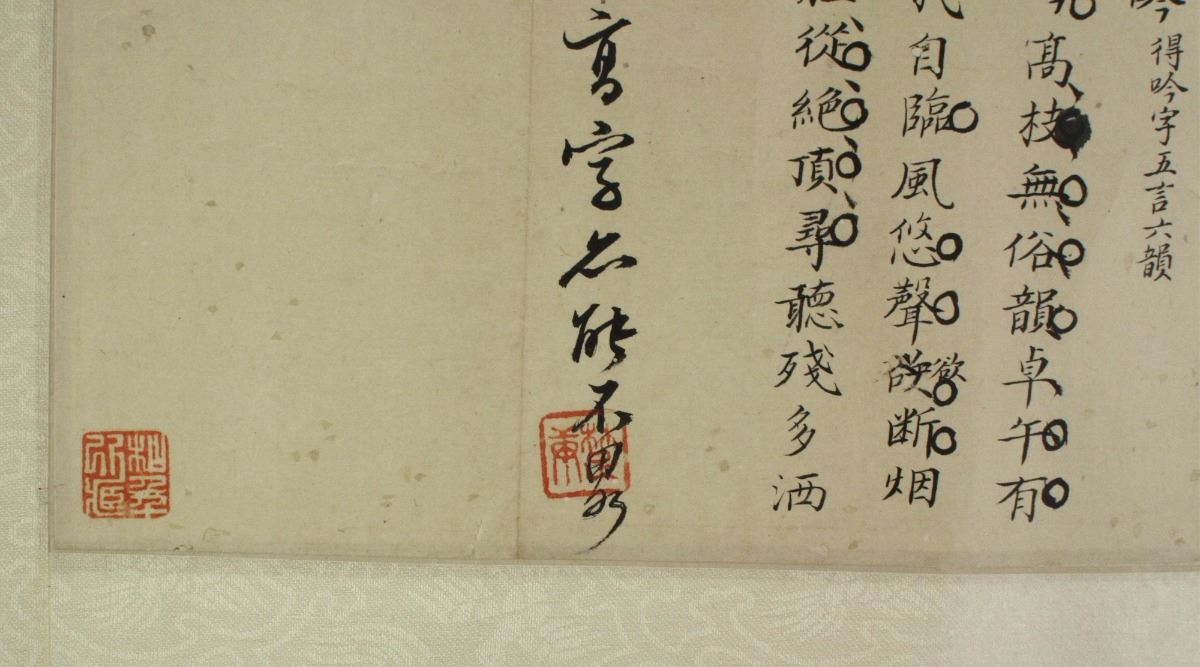 吟 得吟字五言六韻
高枝無俗韻卓午有
自臨風悠聲欲断烟
從絶頂尋聽殘多洒
高字亦能不